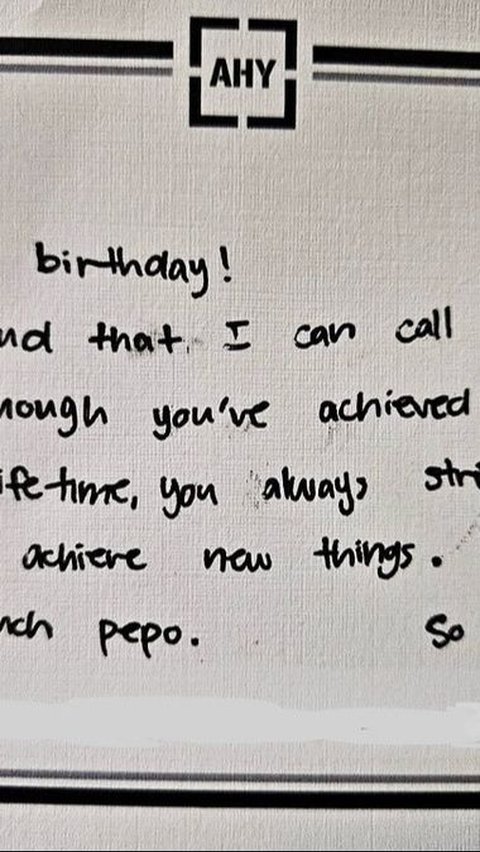 AHY
birthday!
nd that I can call
hough you've achieved
ifetime, you always stri
achieve new things.
ch pepo. So